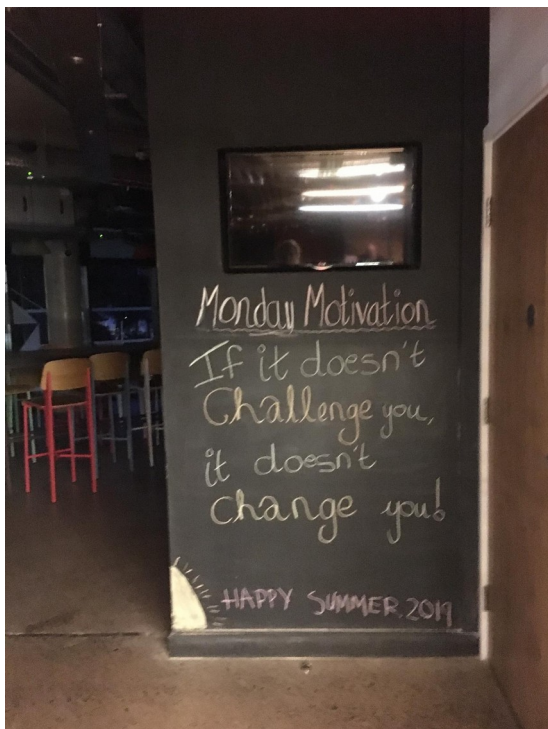 Monday Motivation
If it doesn't
Challenge you,
it doesn't
change you!
HAPPY SUMMER 2019